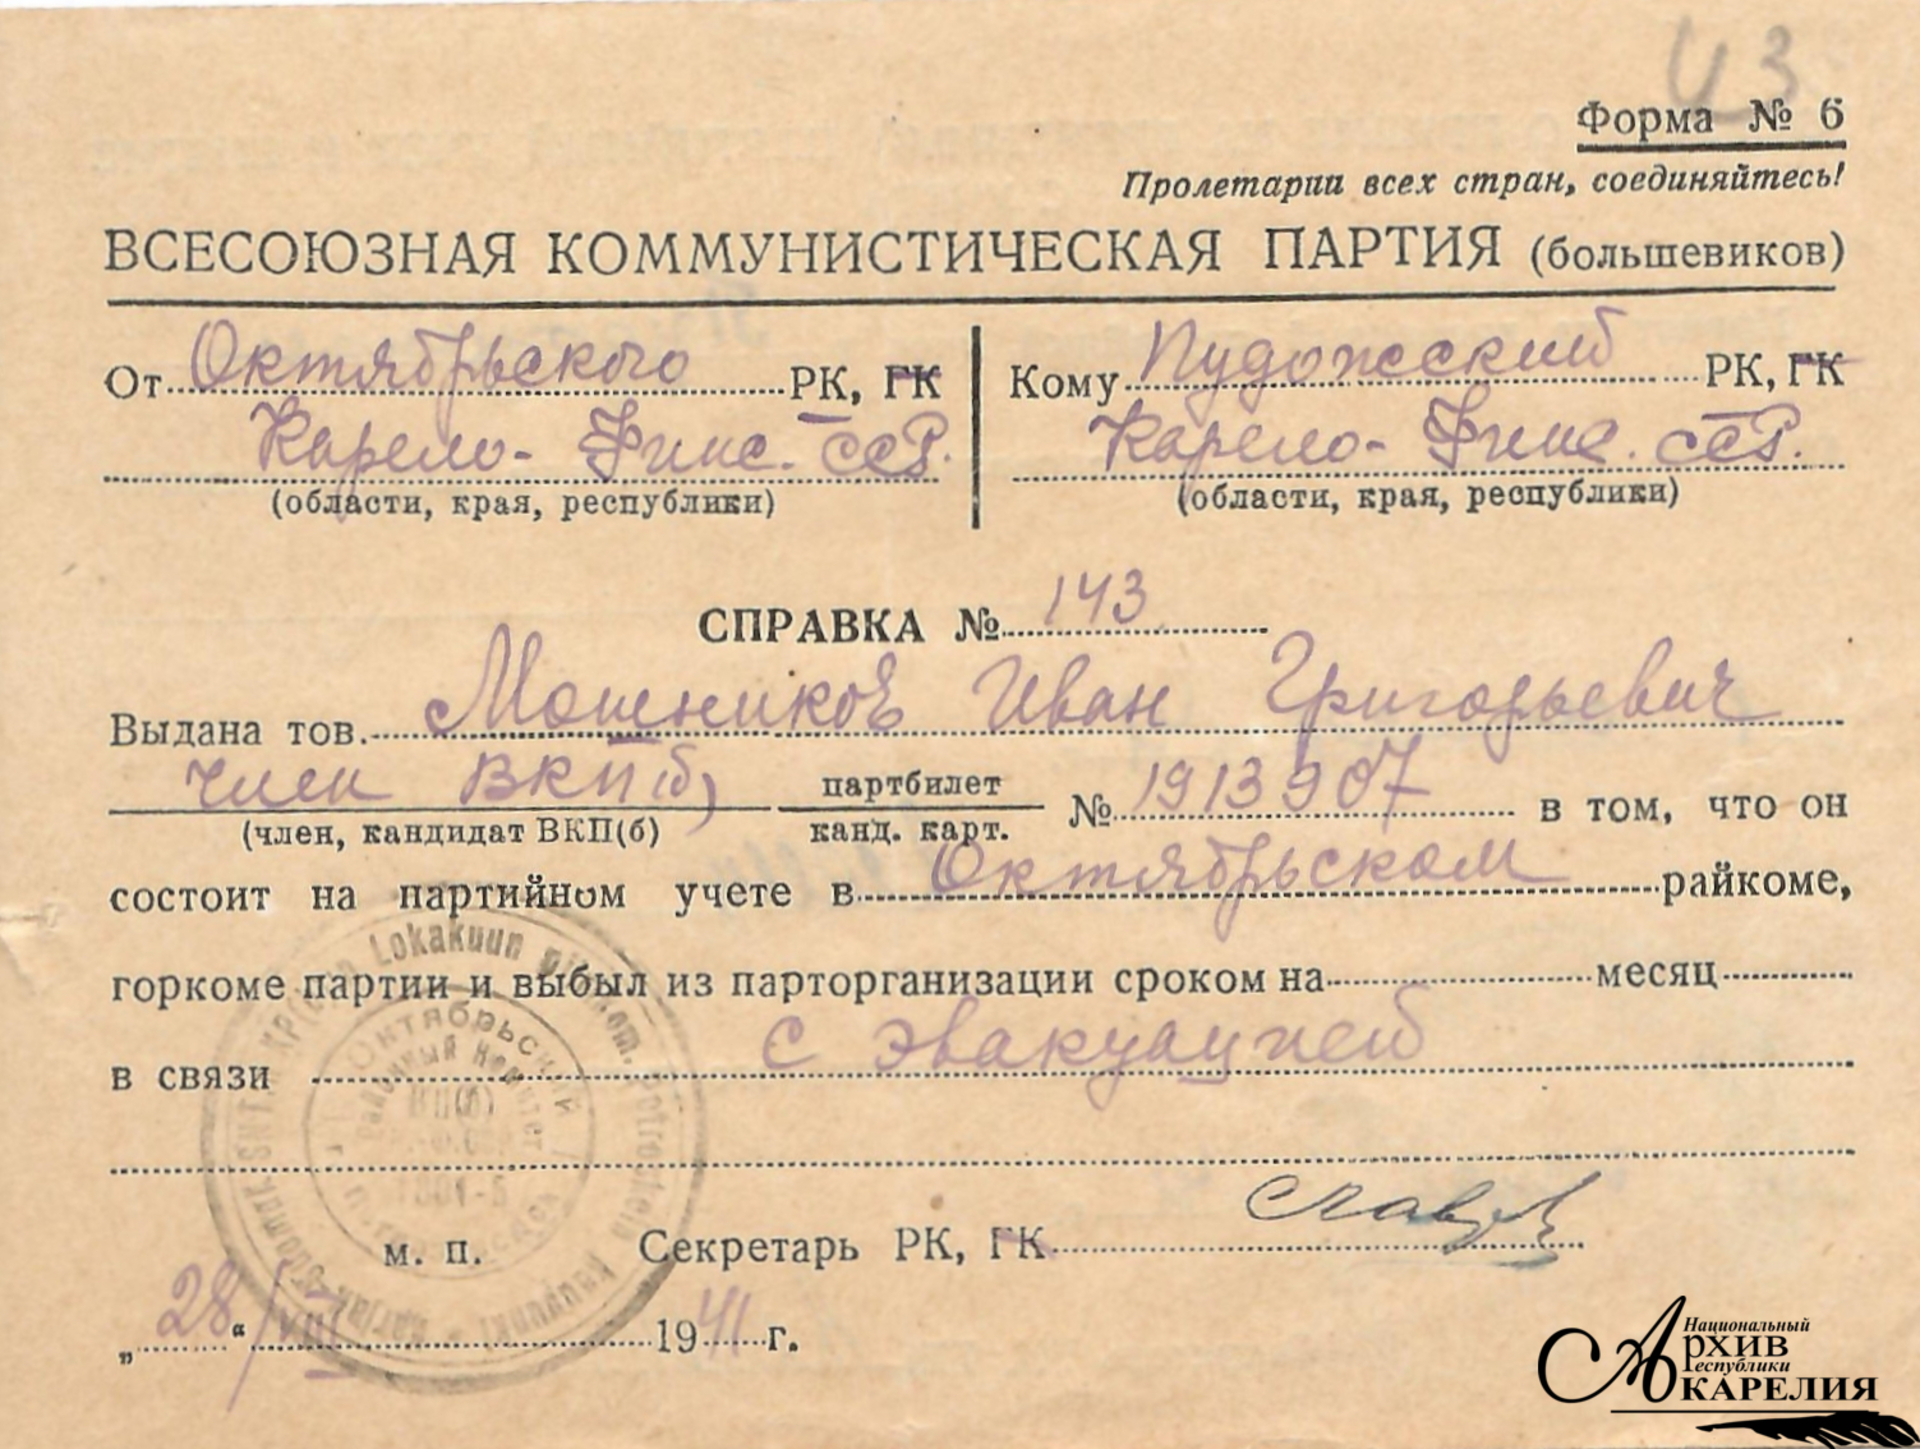 43
Форма № 6
Пролетарии всех стран, соединяйтесь!
ВСЕСОЮЗНАЯ КОММУНИСТИЧЕСКАЯ ПАРТИЯ (большевиков)
От Октябрьского РК, ГК
Карело-Финс. ССР.
(области, края, республики)
Кому Пудожский РК, ГК
Карело-Финс. ССР.
(области, края, республики)
СПРАВКА № 143
Выдана тов. Мошников Иван Григорьевич
член ВКП(б) партбилет № 1913907 в том, что он
(член, кандидат ВКП(б) канд. карт.
состоит на партийном учете в Октябрьском райкоме,
горкоме партии и выбыл из парторганизации сроком на месяц
в связи с эвакуацией
Lokakuun
Октябрьский
районный комитет
КП(б)
м. п. Секретарь РК, ГК
„28“ VIII 1941 г.
Национальный
АРХИВ
Республики
КАРЕЛИЯ